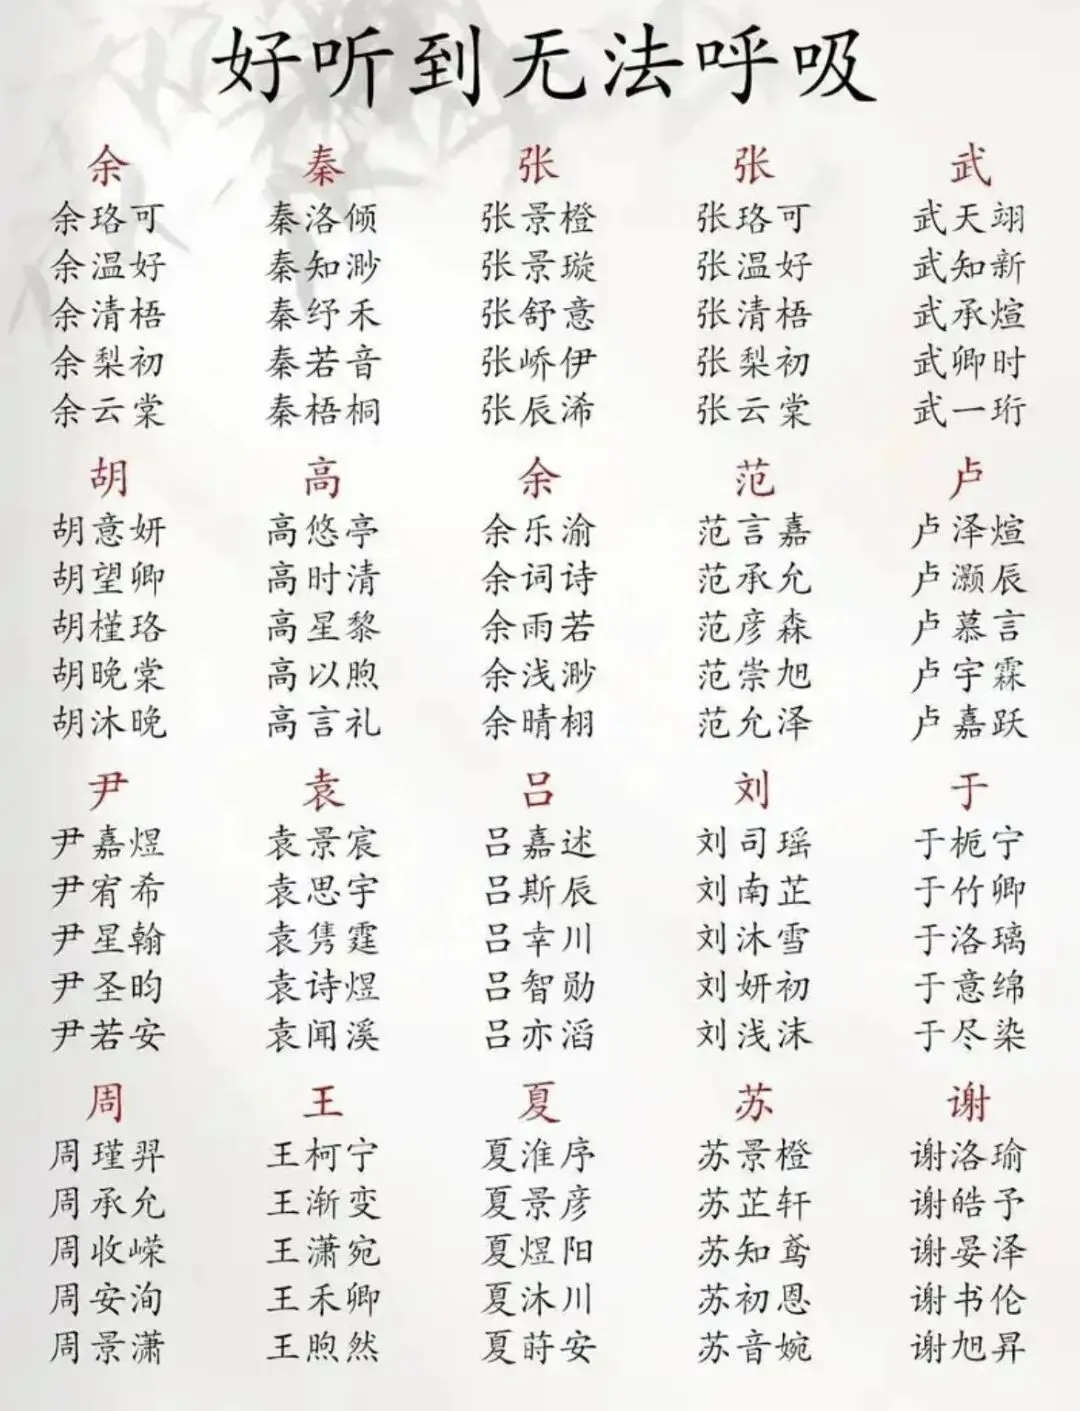 好听到无法呼吸
余 秦 张 张 武
余珞可 秦洛倾 张景橙 张珞可 武天翊
余温好 秦知渺 张景璇 张温好 武知新
余清梧 秦纾禾 张舒意 张清梧 武承煊
余梨初 秦若音 张峤伊 张梨初 武卿时
余云棠 秦梧桐 张辰浠 张云棠 武一珩
胡 高 余 范 卢
胡意妍 高悠亭 余乐渝 范言嘉 卢泽煊
胡望卿 高时清 余词诗 范承允 卢灏辰
胡槿珞 高星黎 余雨若 范彦森 卢慕言
胡晚棠 高以煦 余浅渺 范崇旭 卢宇霖
胡沐晚 高言礼 余晴栩 范允泽 卢嘉跃
尹 袁 吕 刘 于
尹嘉煜 袁景宸 吕嘉述 刘司瑶 于栀宁
尹宥希 袁思宇 吕斯辰 刘南芷 于竹卿
尹星翰 袁隽霆 吕幸川 刘沐雪 于洛璃
尹圣昀 袁诗煜 吕智勋 刘妍初 于意绵
尹若安 袁闻溪 吕亦滔 刘浅沫 于尽染
周 王 夏 苏 谢
周瑾羿 王柯宁 夏淮序 苏景橙 谢洛瑜
周承允 王渐变 夏景彦 苏芷轩 谢皓予
周收嵘 王潇宛 夏煜阳 苏知鸢 谢晏泽
周安洵 王禾卿 夏沐川 苏初恩 谢书伦
周景潇 王煦然 夏莳安 苏音婉 谢旭昇